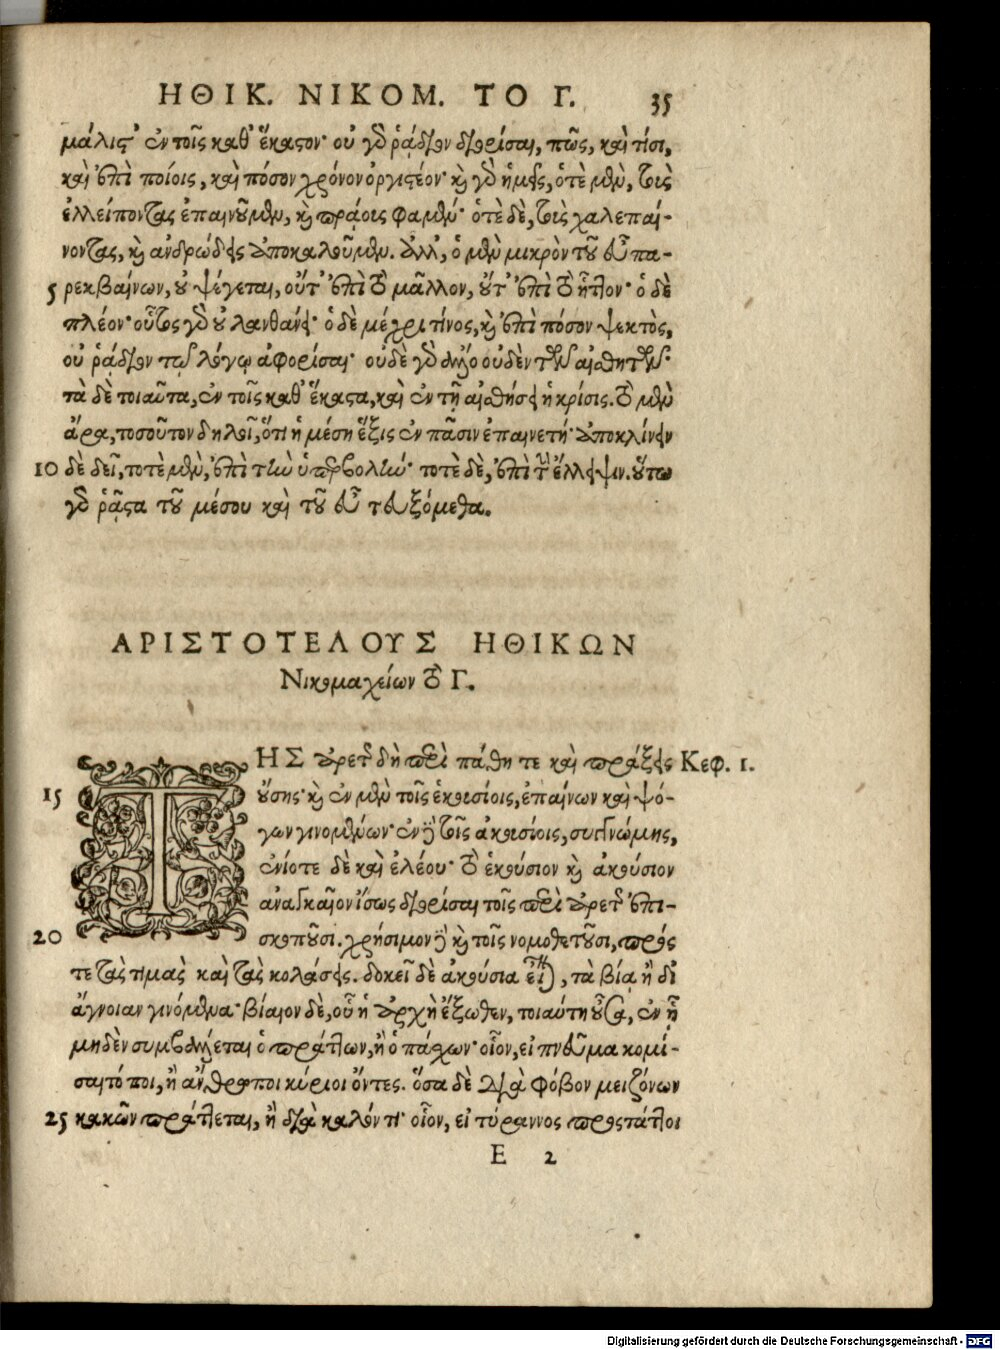 ΗΘΙΚ. ΝΙΚΟΜ. ΤΟ Γ. 35
μάλιστ' ἐν τοῖς καθ' ἕκαστον· οὐ γὸ ῥάδιον διορίσαι, πῶς, καὶ τίσι,
καὶ ἐπὶ ποίοις, καὶ πόσον χρόνον ὀργιστέον· καὶ γὸ ἡμεῖς, ὁτὲ μὲν, τοὺς
ἐλλείποντας ἐπαινοῦμεν, καὶ πράους φαμέν· ὁτὲ δὲ, τοὺς χαλεπαί-
νοντας, καὶ ἀνδρώδεις ἀποκαλοῦμεν. ἀλλ', ὁ μὲν μικρὸν τοῦ εὖ πα-
5 ρεκβαίνων, οὐ ψέγεται, οὔτ' ἐπὶ τὸ μᾶλλον, οὔτ' ἐπὶ τὸ ἧττον· ὁ δὲ
πλέον· οὗτος γὸ οὐ λανθάνει· ὁ δὲ μέχρι τίνος, καὶ ἐπὶ πόσον ψεκτὸς,
οὐ ῥάδιον τῷ λόγῳ ἀφορίσαι· οὐδὲ γὸ ἄλλο οὐδὲν τῶν αἰσθητῶν·
τὰ δὲ τοιαῦτα, ἐν τοῖς καθ' ἕκαστα, καὶ ἐν τῇ αἰσθήσει ἡ κρίσις. τὸ μὲν
ἄρα, τοσοῦτον δηλοῖ, ὅτι ἡ μέση ἕξις ἐν πᾶσιν ἐπαινετή· ἀποκλίνειν
10 δὲ δεῖ, τοτὲ μὲν, ἐπὶ τὴν ὑπερβολήν· τοτὲ δὲ, ἐπὶ τὴν ἔλλειψιν. οὕτω
γὸ ῥᾷστα τοῦ μέσου καὶ τοῦ εὖ τευξόμεθα.
ΑΡΙΣΤΟΤΕΛΟΥΣ ΗΘΙΚΩΝ
Νικομαχείων τὸ Γ.
ΤΗΣ ἀρετῆς δὴ περὶ πάθη τε καὶ πράξεις Κεφ. 1.
15 οὔσης· καὶ ἐν μὲν τοῖς ἑκουσίοις, ἐπαίνων καὶ ψό-
γων γινομένων· ἐν δὲ τοῖς ἀκουσίοις, συγγνώμης,
ἐνίοτε δὲ καὶ ἐλέου· τὸ ἑκούσιον καὶ ἀκούσιον
ἀναγκαῖον ἴσως διορίσαι τοῖς περὶ ἀρετῆς ἐπι-
20 σκοποῦσι. χρήσιμον δὲ καὶ τοῖς νομοθετοῦσι, πρός
τε τὰς τιμὰς καὶ τὰς κολάσεις. δοκεῖ δὲ ἀκούσια εἶναι, τὰ βίᾳ ἢ δι'
ἄγνοιαν γινόμενα· βίαιον δὲ, οὗ ἡ ἀρχὴ ἔξωθεν, τοιαύτη οὖσα, ἐν ᾗ
μηδὲν συμβάλλεται ὁ πράττων, ἢ ὁ πάσχων· οἷον, εἰ πνεῦμα κομί-
σαι τό ποι, ἢ ἄνθρωποι κύριοι ὄντες. ὅσα δὲ διὰ φόβον μειζόνων
25 κακῶν πράττεται, ἢ διὰ καλόν τι· οἷον, εἰ τύραννος προστάττοι
Ε 2
Digitalisierung gefördert durch die Deutsche Forschungsgemeinschaft - DFG